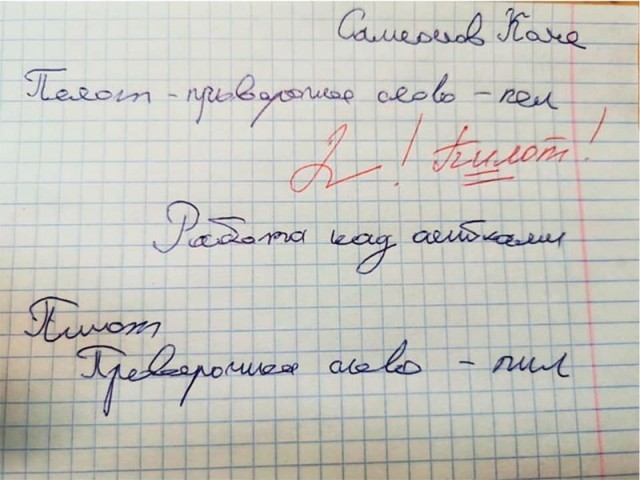 Самсонов Коля
Пелот - проверочное слово - пел
2! Пилот!
Работа над ошибками
Пилот
Проверочное слово - пил